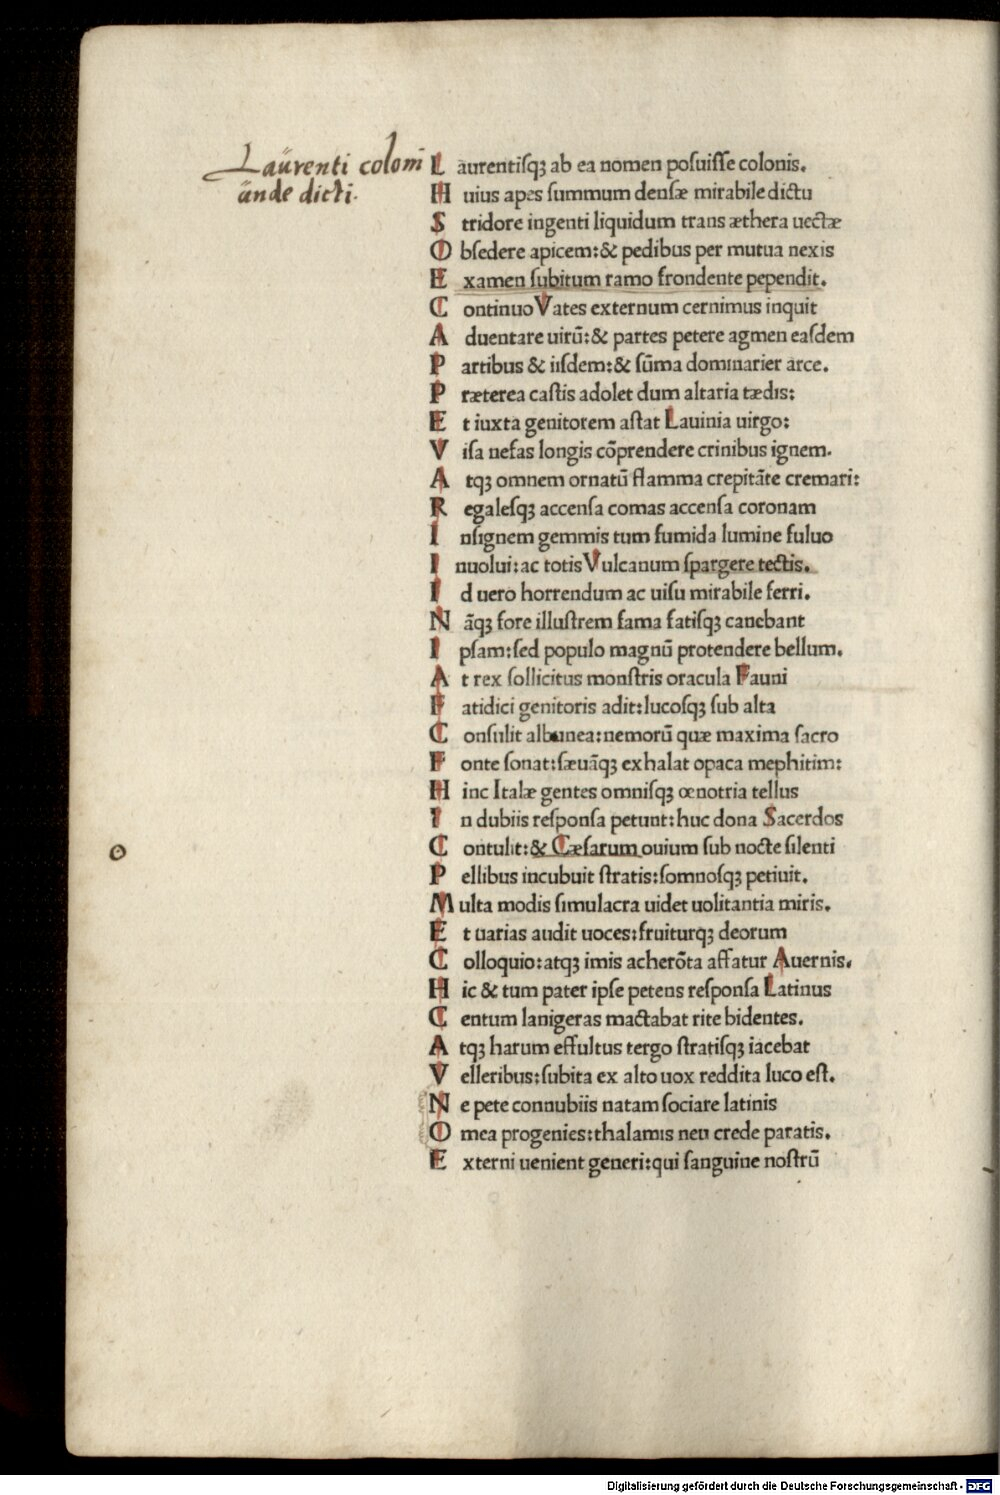 Laurenti coloni
unde dicti.
Laurentisqꝫ ab ea nomen posuisse colonis.
Huius apes summum densæ mirabile dictu
Stridore ingenti liquidum trans æthera uectæ
Obsedere apicem:& pedibus per mutua nexis
Examen subitum ramo frondente pependit.
Continuo Vates externum cernimus inquit
Aduentare uirū:& partes petere agmen easdem
Partibus & iisdem:& sūma dominarier arce.
Præterea castis adolet dum altaria tædis:
Et iuxta genitorem astat Lauinia uirgo:
Visa nefas longis cōprendere crinibus ignem.
Atqꝫ omnem ornatū flamma crepitāte cremari:
Regalesqꝫ accensa comas accensa coronam
Insignem gemmis tum fumida lumine fuluo
Inuolui:ac totis Vulcanum spargere tectis.
Id uero horrendum ac uisu mirabile ferri.
Nāqꝫ fore illustrem fama fatisqꝫ canebant
Ipsam:sed populo magnū protendere bellum.
At rex sollicitus monstris oracula Fauni
Fatidici genitoris adit:lucosqꝫ sub alta
Consulit albunea:nemorū quæ maxima sacro
Fonte sonat:sæuāqꝫ exhalat opaca mephitim:
Hinc Italæ gentes omnisqꝫ œnotria tellus
In dubiis responsa petunt:huc dona Sacerdos
Contulit:& Cæsarum ouium sub nocte silenti
Pellibus incubuit stratis:somnosqꝫ petiuit.
Multa modis simulacra uidet uolitantia miris.
Et uarias audit uoces:fruiturqꝫ deorum
Colloquio:atqꝫ imis acherōta affatur Auernis.
Hic & tum pater ipse petens responsa Latinus
Centum lanigeras mactabat rite bidentes.
Atqꝫ harum effultus tergo stratisqꝫ iacebat
Velleribus:subita ex alto uox reddita luco est.
Ne pete connubiis natam sociare latinis
O mea progenies:thalamis neu crede paratis.
Externi uenient generi:qui sanguine nostrū
Digitalisierung gefördert durch die Deutsche Forschungsgemeinschaft - DFG